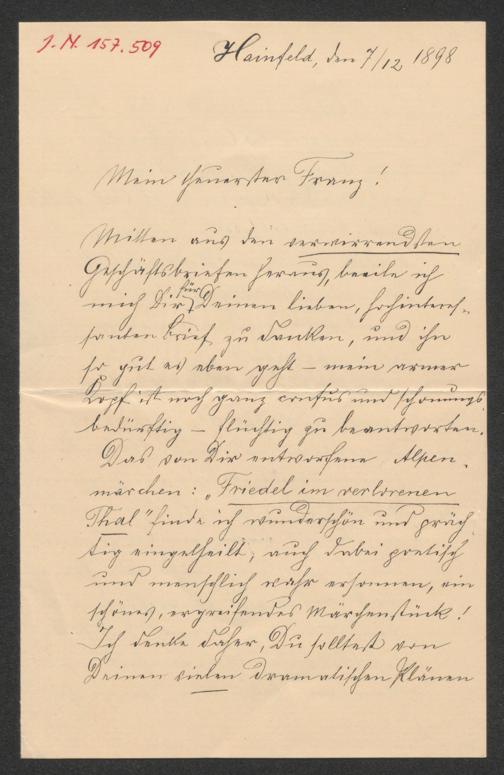 J. N. 157.509
Hainfeld, den 7/12 1898
Mein theuerster Franz!
Mitten aus den verwirrendsten
Geschäftsbriefen heraus, beeile ich
mich Dir für Deinen lieben, hochinteres-
santen Brief zu danken, und ihn
so gut es eben geht – mein armer
Kopf ist noch ganz confus und schonungs-
bedürftig – flüchtig zu beantworten.
Das von Dir entworfene Alpen-
märchen: „Friedel im verlorenen
Thal" finde ich wunderschön und präch-
tig eingetheilt; auch dabei poetisch
und menschlich wahr ersonnen, ein
schönes, ergreifendes Märchenstück!
Ich denke daher, Du solltest von
Deinen vielen dramatischen Plänen